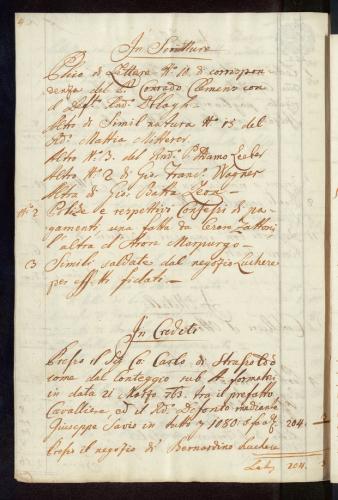 4
In Scritture
Plico di Lettere N.º 10. di corrispon
denza del S. Conrado Clemens con
il Def.º And.ª
Altro di Simil natura N.º 15 del
Sd.º Mattia Mitterer
Altro N.º 3. del S. Adamo Leeber
Altro N.º 2 di Gio: Franc.º Wagner
Altro di Gio: Batta Leon
N.º 2 Polize e respettivi Confessi di pa-
gamenti, una fatta da Leon Fattori
altra d'Aron Morpurgo
3 Simili saldate dal negozio Luchere
per effetti fidati
In Crediti
Presso il Sd. Co: Carlo di Strasoldo
come dal Conteggio sub A. formatosi
in data 21 Marzo 763. tra il prefatto
Cavalliere, ed il Sd. Defonto mediante
Giuseppe Savio in tutto 1080 204
Presso il negozio di Bernardino Luchere
Lat. 204.